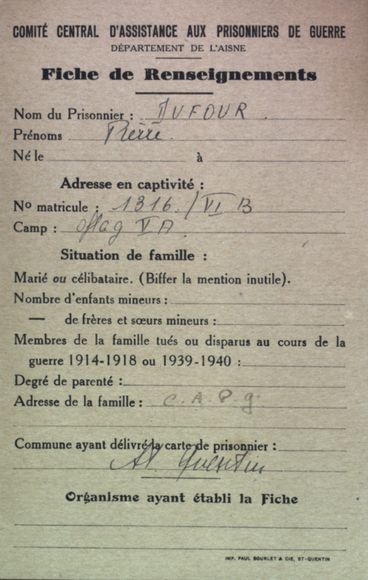 COMITÉ CENTRAL D'ASSISTANCE AUX PRISONNIERS DE GUERRE
DÉPARTEMENT DE L'AISNE
Fiche de Renseignements
Nom du Prisonnier : DUFOUR.
Prénoms Pierre.
Né le à
Adresse en captivité :
No matricule : 1316./VI B
Camp : oflag V A
Situation de famille :
Marié ou célibataire. (Biffer la mention inutile).
Nombre d'enfants mineurs :
— de frères et sœurs mineurs :
Membres de la famille tués ou disparus au cours de la
guerre 1914-1918 ou 1939-1940 :
Degré de parenté :
Adresse de la famille : C.A.P.g
Commune ayant délivré la carte de prisonnier :
St Quentin
Organisme ayant établi la Fiche
IMP. PAUL BOURLET & CIE, ST-QUENTIN